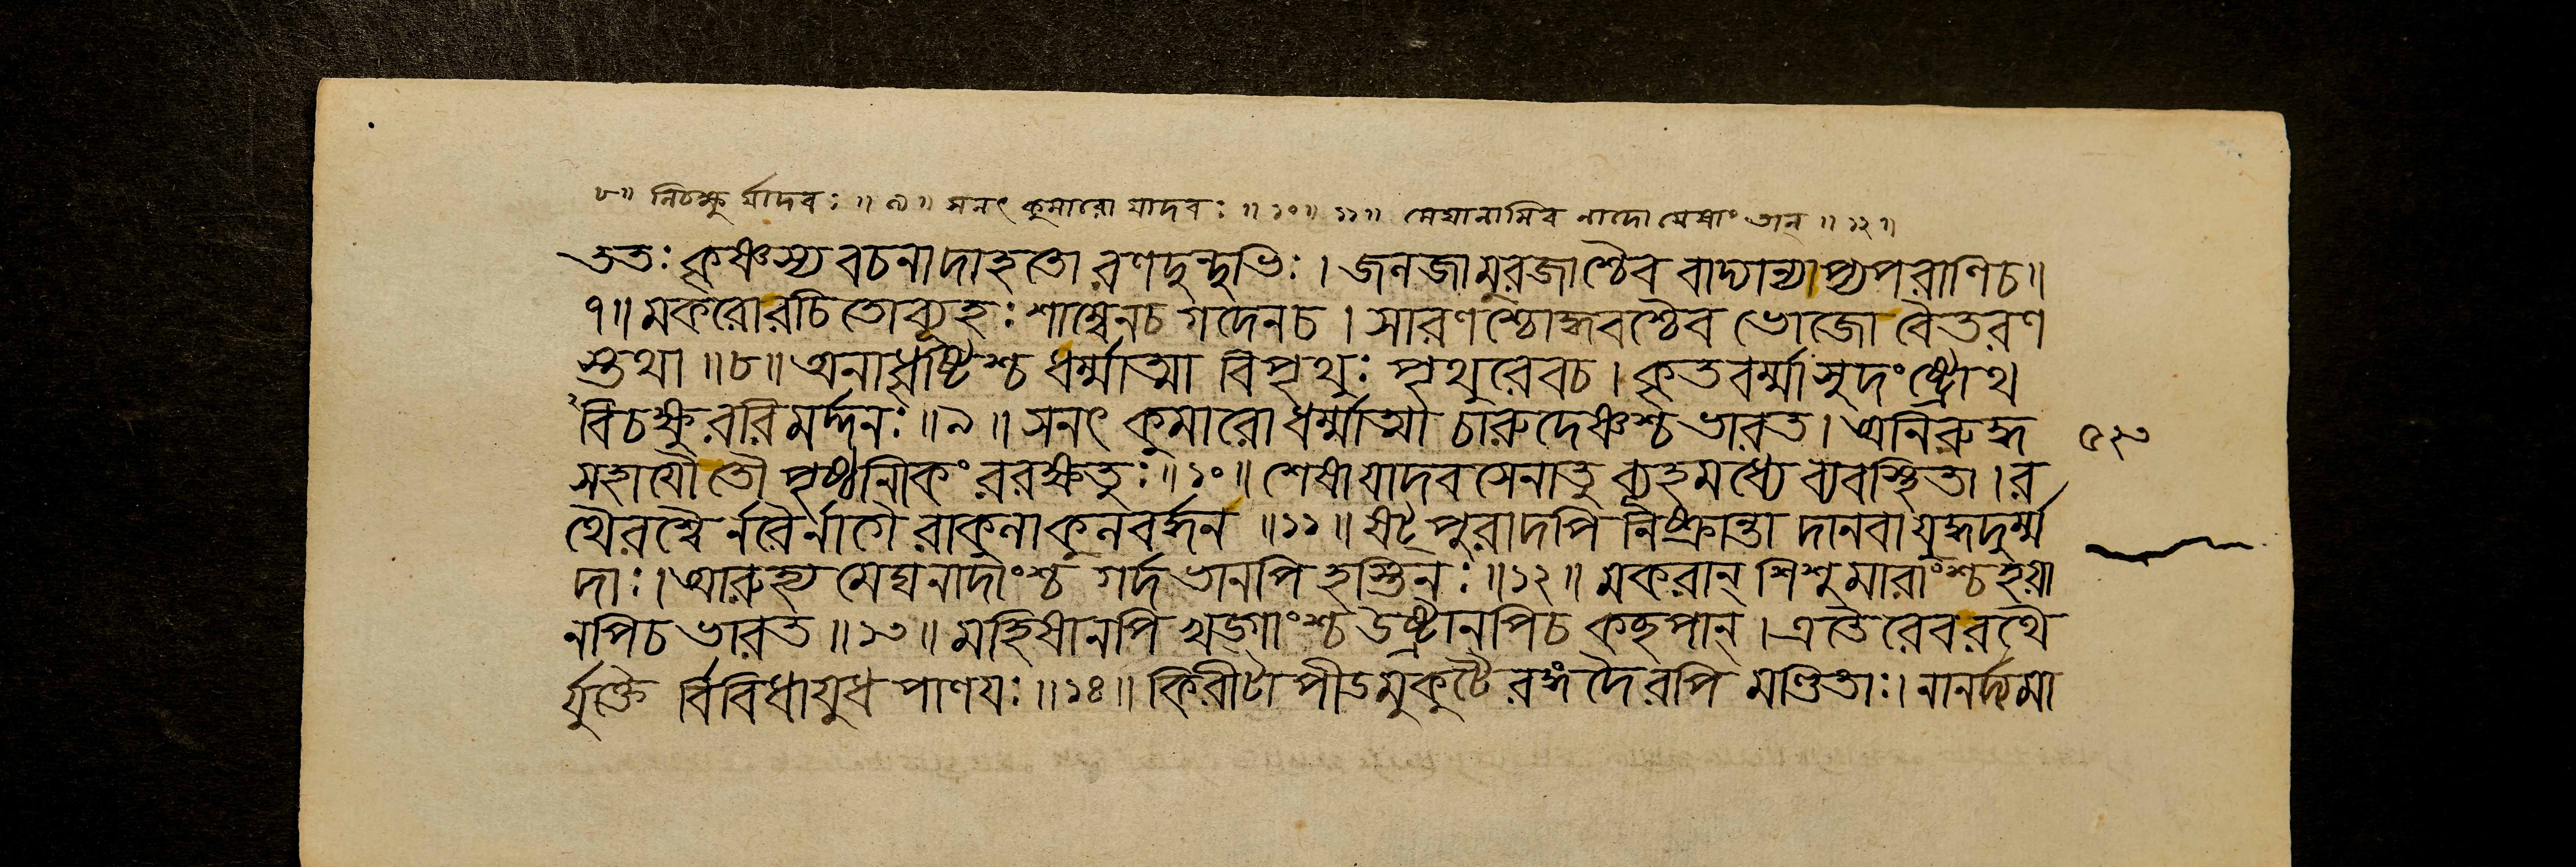 ৮॥ বিচক্ষু র্যাদবঃ ॥ ৯॥ সনৎ কুমারো যাদবঃ ॥ ১০॥ ১১॥ মেঘানামিব নাদো যেষাং তান্ ॥ ১২॥
ততঃ কৃষ্ণস্য বচনাদাহতো রণদুন্দুভিঃ । জলজামুরজাশ্চৈব বাদ্যান্যাপ্যপরাণিচ॥
৭॥ মকরোরচিতোব্যূহঃ শাম্বেনচ গদেনচ । সারণশ্চোদ্ধবশ্চৈব ভোজো বৈতরণ
স্তথা ॥৮॥ অনাধৃষ্টিশ্চ ধর্ম্মাত্মা বিপৃথুঃ পৃথুরেবচ । কৃতবর্ম্মা সুদংষ্ট্রোথ
বিচক্ষু ররিমর্দ্দনঃ ॥৯॥ সনৎ কুমারো ধর্ম্মাত্মা চারুদেষ্ণশ্চ ভারত । অনিরুদ্ধ
সহাযৌ তৌ পৃষ্ঠানিকং ররক্ষতুঃ ॥১০॥ শেষা যাদবসেনাতু ব্যূহমধ্যে ব্যবস্থিতা । র
থৈরশ্বৈ র্নরৈর্নাগৈ রাকুলাকুলবর্দ্ধন ॥১১॥ ষট্পুরাদপি নিষ্ক্রান্তা দানবা যুদ্ধদুর্ম্ম
দাঃ । আরুহ্য মেঘনাদাংশ্চ গর্দভানপি হস্তিনঃ ॥১২॥ মকরান্ শিশুমারাংশ্চ হয়া
নপিচ ভারত ॥১৩॥ মহিষানপি খড্গাংশ্চ উষ্ট্রানপিচ কচ্ছপান্ । এতৈরেবরথৈ
র্যুক্তৈ র্বিবিধাযুধ পাণযঃ ॥১৪॥ কিরীটা পীড়মুকুটৈ রঙ্গদৈরপি মণ্ডিতাঃ । নানর্দ্দমা
৫২৩